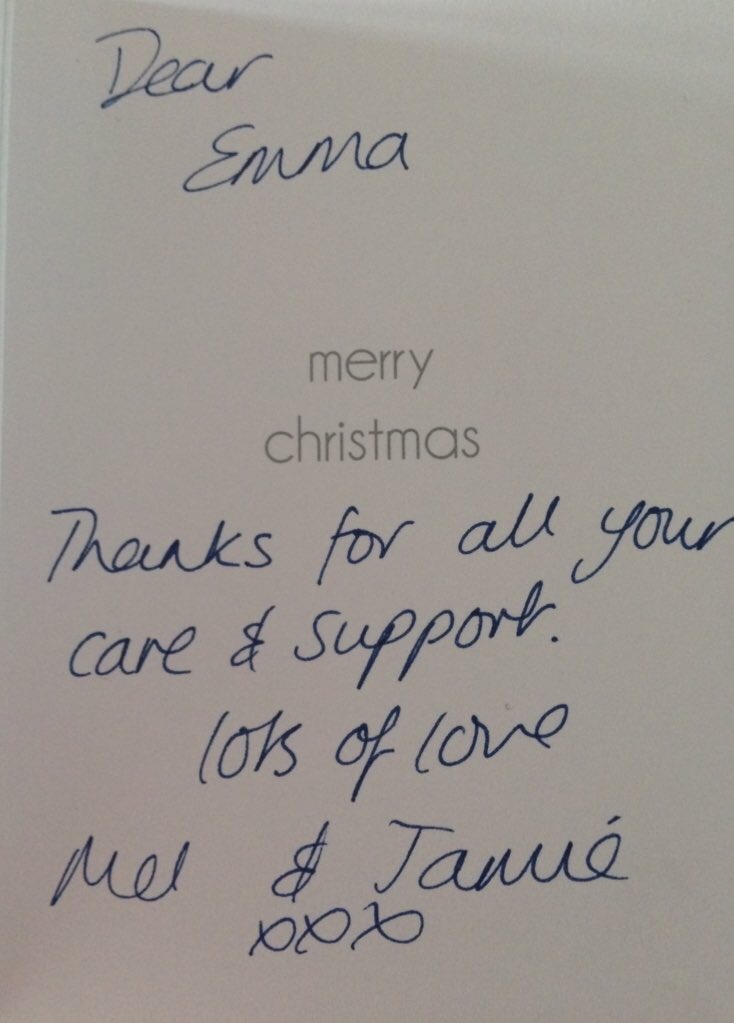 Dear
Emma
merry
christmas
Thanks for all your
care & support.
lots of love
Mel & Jamie
xxx